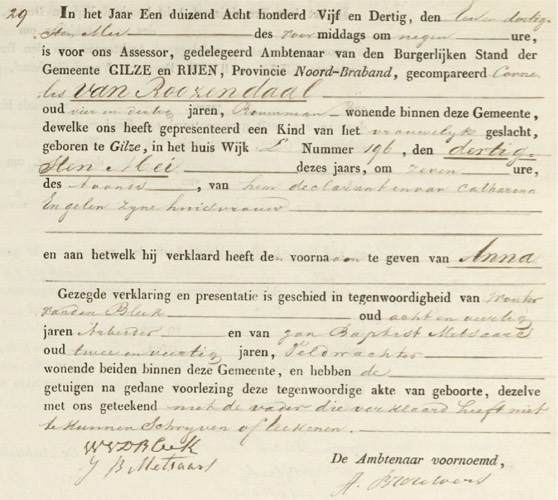 29
In het Jaar Een duizend Acht honderd Vijf en Dertig, den een en dertig-
sten Mei des voor middags om negen ure,
is voor ons Assessor, gedelegeerd Ambtenaar van den Burgerlijken Stand der
Gemeente GILZE en RIJEN, Provincie Noord-Braband, gecompareerd Corne-
lis van Roozendaal
oud vier en dertig jaren, Bouwman wonende binnen deze Gemeente,
dewelke ons heeft gepresenteerd een Kind van het vrouwelyk geslacht,
geboren te Gilze, in het huis Wijk E Nummer 196, den dertig-
sten Mei dezes jaars, om zeven ure,
des avonds, van hem declarant en van Catharina
Engelen zyne huisvrouw
en aan hetwelk hij verklaard heeft den voornaam te geven van Anna
Gezegde verklaring en presentatie is geschied in tegenwoordigheid van Wouter
van den Bleek oud acht en veertig
jaren Arbeider en van Jan Baptist Metsaars
oud twee en veertig jaren, Veldwachter
wonende beiden binnen deze Gemeente, en hebben de
getuigen na gedane voorlezing deze tegenwoordige akte van geboorte, dezelve
met ons geteekend met de vader die verklaard heeft niet
te kunnen Schryven of teekenen.
W V D Bleek
J B Metsaars
De Ambtenaar voornoemd,
A. Brouwers